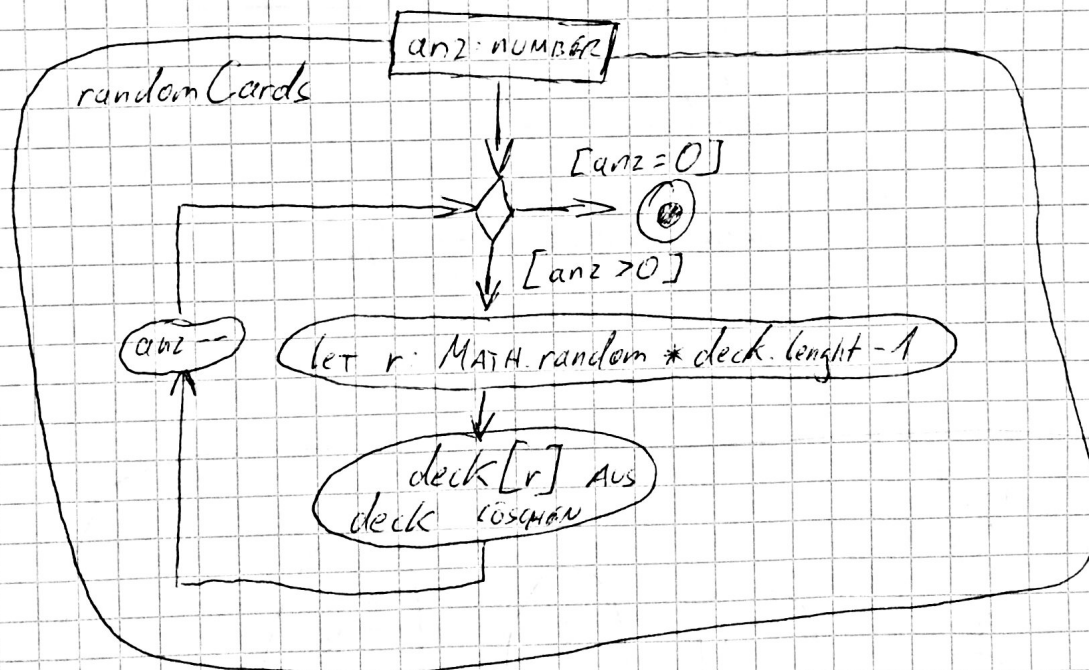 anz: NUMBER
randomCards
[anz=0]
[anz>0]
anz--
LET r: MATH.random * deck.lenght-1
deck[r] AUS
deck LÖSCHEN